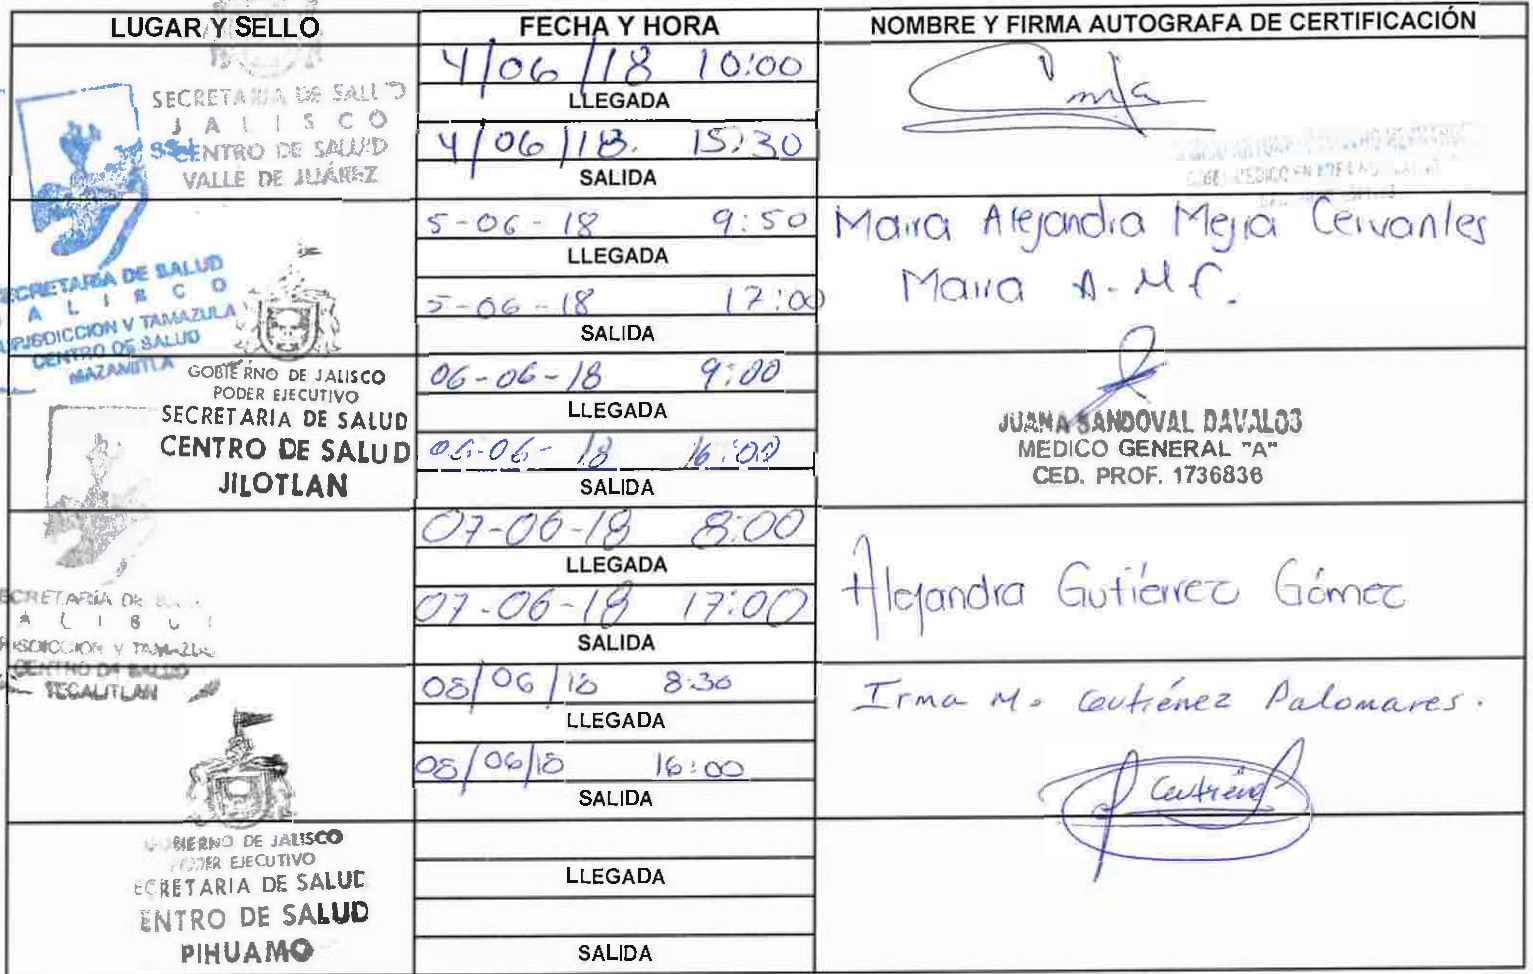 LUGAR Y SELLO
FECHA Y HORA
NOMBRE Y FIRMA AUTOGRAFA DE CERTIFICACIÓN
SECRETARIA DE SALUD
JALISCO
CENTRO DE SALUD
VALLE DE JUÁREZ
4/06/18 10:00
LLEGADA
4/06/18. 15:30
SALIDA
SECRETARÍA DE SALUD
ALISCO
JURISDICCION V TAMAZULA
CENTRO DE SALUD
MAZAMITLA
5-06-18 9:50
LLEGADA
5-06-18 17:00
SALIDA
Maira Alejandra Mejia Cervantes
Maira A. M C.
GOBIERNO DE JALISCO
PODER EJECUTIVO
SECRETARIA DE SALUD
CENTRO DE SALUD
JILOTLAN
06-06-18 9:00
LLEGADA
06-06-18 16:00
SALIDA
JUANA SANDOVAL DAVALOS
MEDICO GENERAL "A"
CED. PROF. 1736836
ECRETARÍA DE
ALIS
JURISDICCION V TAMAZULA
CENTRO DE SALUD
TECALITLAN
07-06-18 8:00
LLEGADA
07-06-18 17:00
SALIDA
Alejandra Gutiérrez Gómez
08/06/18 8:30
LLEGADA
08/06/18 16:00
SALIDA
Irma M. Gutiérrez Palomares.
Gutiérrez
GOBIERNO DE JALISCO
PODER EJECUTIVO
ECRETARIA DE SALUD
ENTRO DE SALUD
PIHUAMO
LLEGADA
SALIDA